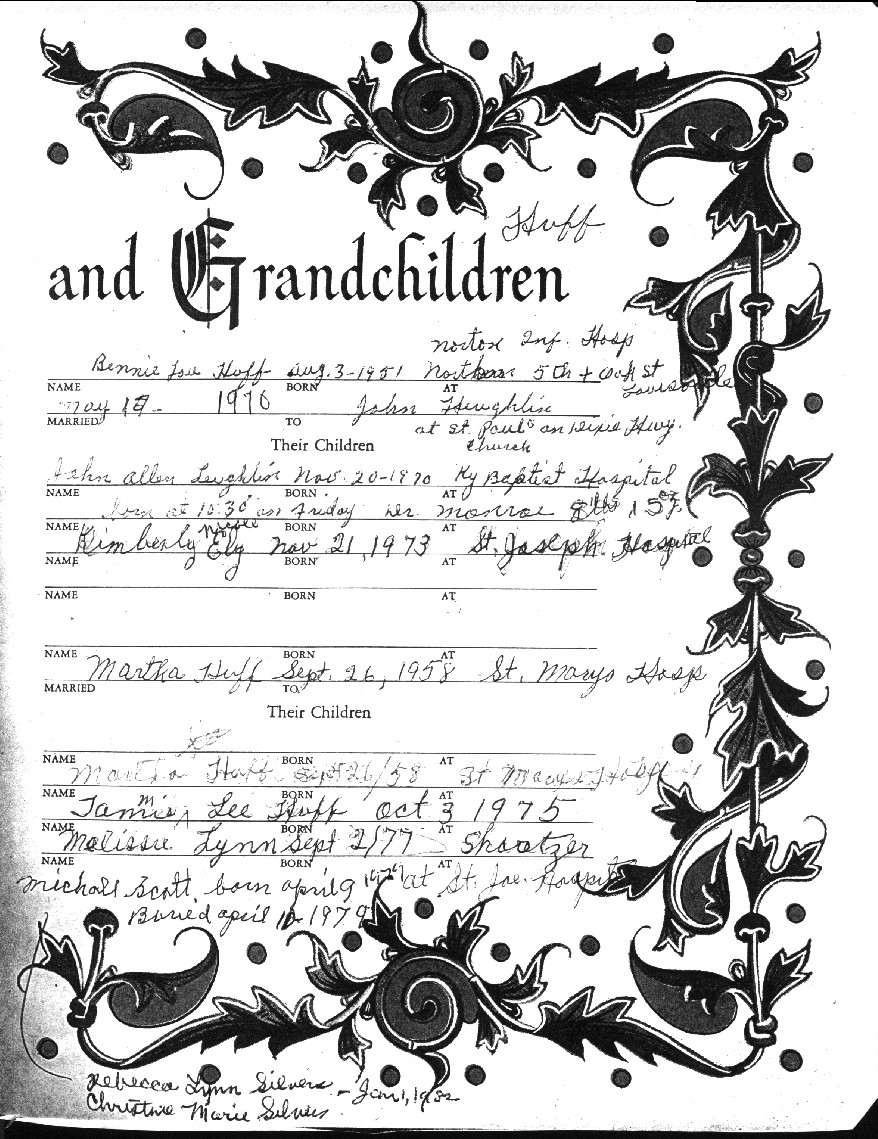 Huff
and Grandchildren
Inf. Hosp
Bennie Lou Huff Aug. 3-1951 5th + Oak St
Louisville
NAME BORN AT
May 1970 John Heughlin
MARRIED TO
at St. Pauls on Dixie Hwy.
Their Children Church
John Allen Nov. 20-1970 Ky Baptist Hospital
NAME BORN AT
born at 10:30 on Friday Dr. Monroe 8 lbs 15 oz
NAME BORN AT
Nicole
Kimberly Ely Nov 21, 1973 St. Joseph Hospital
NAME BORN AT
NAME BORN AT
NAME BORN AT
Martha Huff Sept. 26, 1958 St. Marys Hosp
MARRIED TO
Their Children
NAME BORN AT
Martha Huff Sept 26/58 St Marys
NAME BORN AT
Tammie Lee Huff Oct 3 1975
NAME BORN AT
Melissie Lynn Sept 2/77
NAME BORN AT
Michall Scott, born April 9 1979 at St. Joe Hospital
Buried April 1979
Rebecca Lynn Silvers - Jan 1, 1982
Christine Marie Silvers